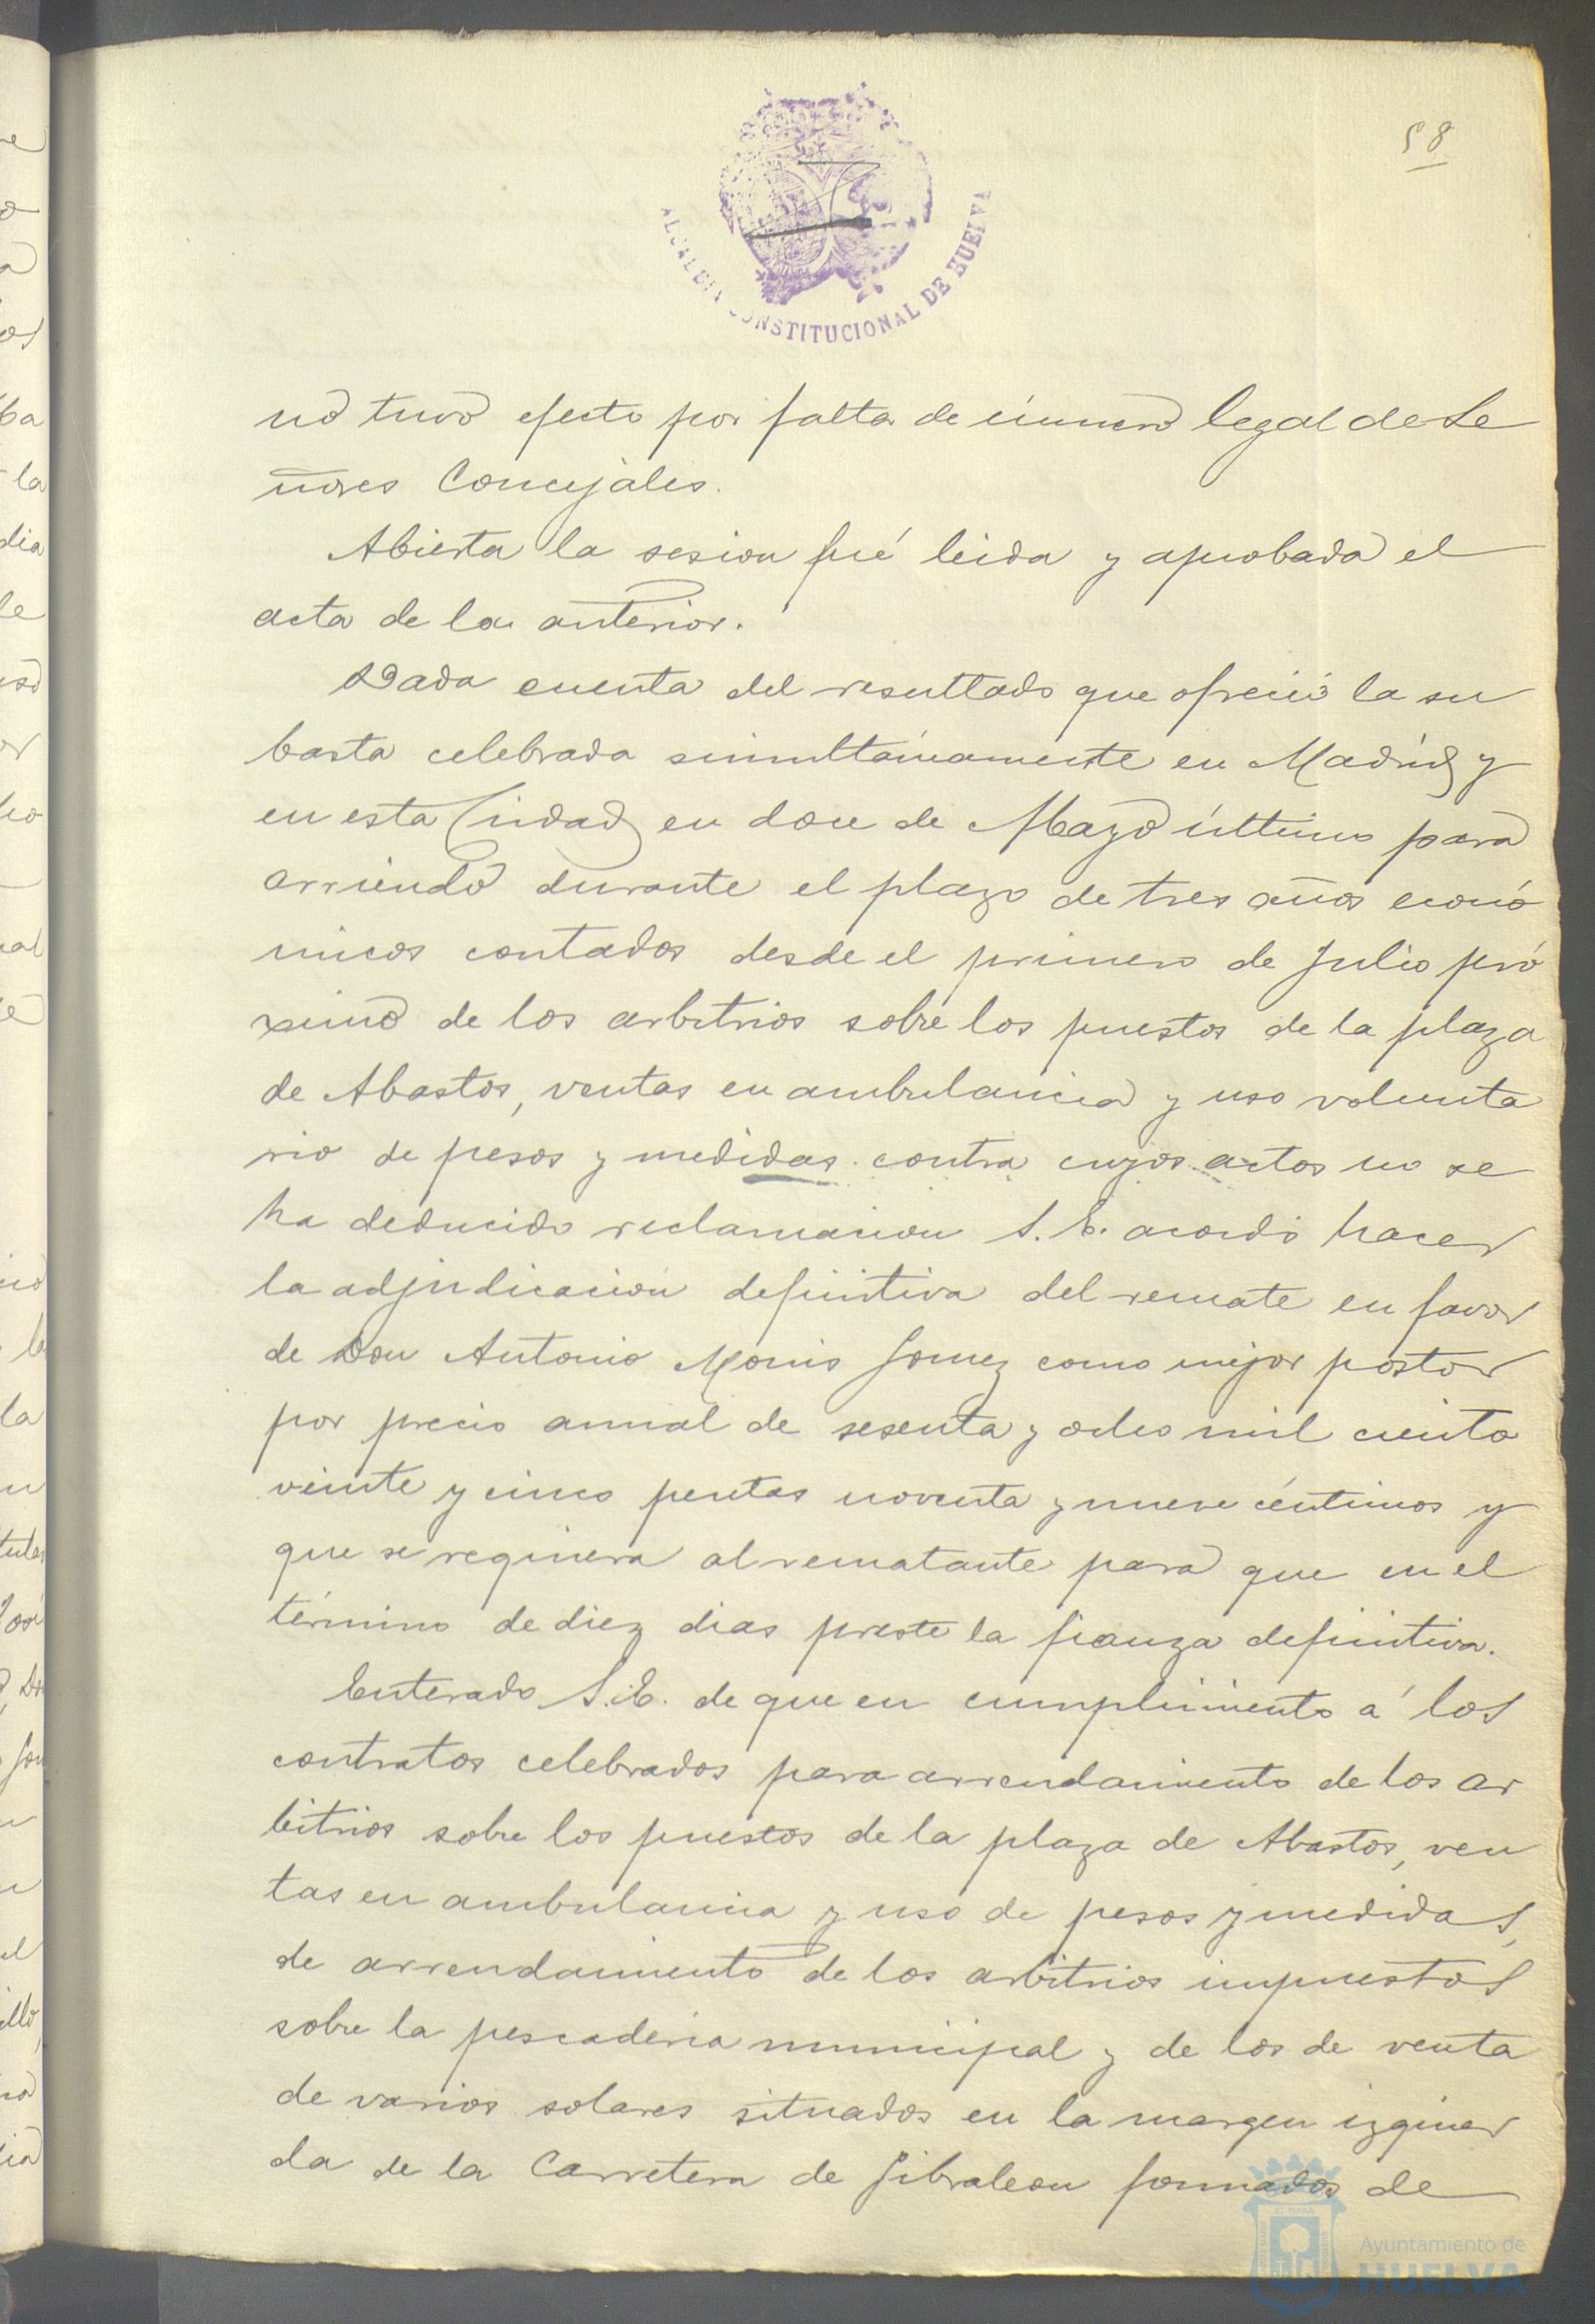 58
ALCALDIA CONSTITUCIONAL DE HUELVA
no tuvo efecto por falta de número legal de Se
ñores Concejales.
Abierta la sesion fué leida y aprobada el
acta de la anterior.
Dada cuenta del resultado que ofreció la su
basta celebrada simultáneamente en Madrid y
en esta Ciudad en doce de Mayo último para
arriendo durante el plazo de tres años econó
micos contados desde el primero de Julio pró
ximo de los arbitrios sobre los puestos de la plaza
de Abastos, ventas en ambulancia y uso volunta
rio de pesos y medidas contra cuyos actos no se
ha deducido reclamacion S. E. acordó hacer
la adjudicación definitiva del remate en favor
de Don Antonio Monis Gomez como mejor postor
por precio annal de sesenta y ocho mil ciento
veinte y cinco pesetas noventa y nueve céntimos y
que se requiera al rematante para que en el
término de diez dias preste la fianza definitiva.
Enterado S. E. de que en cumplimiento á los
contratos celebrados para arrendamiento de los ar
bitrios sobre los puestos de la plaza de Abastos, ven
tas en ambulancia y uso de pesos y medidas,
de arrendamiento de los arbitrios impuestos
sobre la pescaderia municipal y de los de venta
de varios solares situados en la margen izquier
da de la Carretera de Gibraleon formados de
Ayuntamiento de
HUELVA